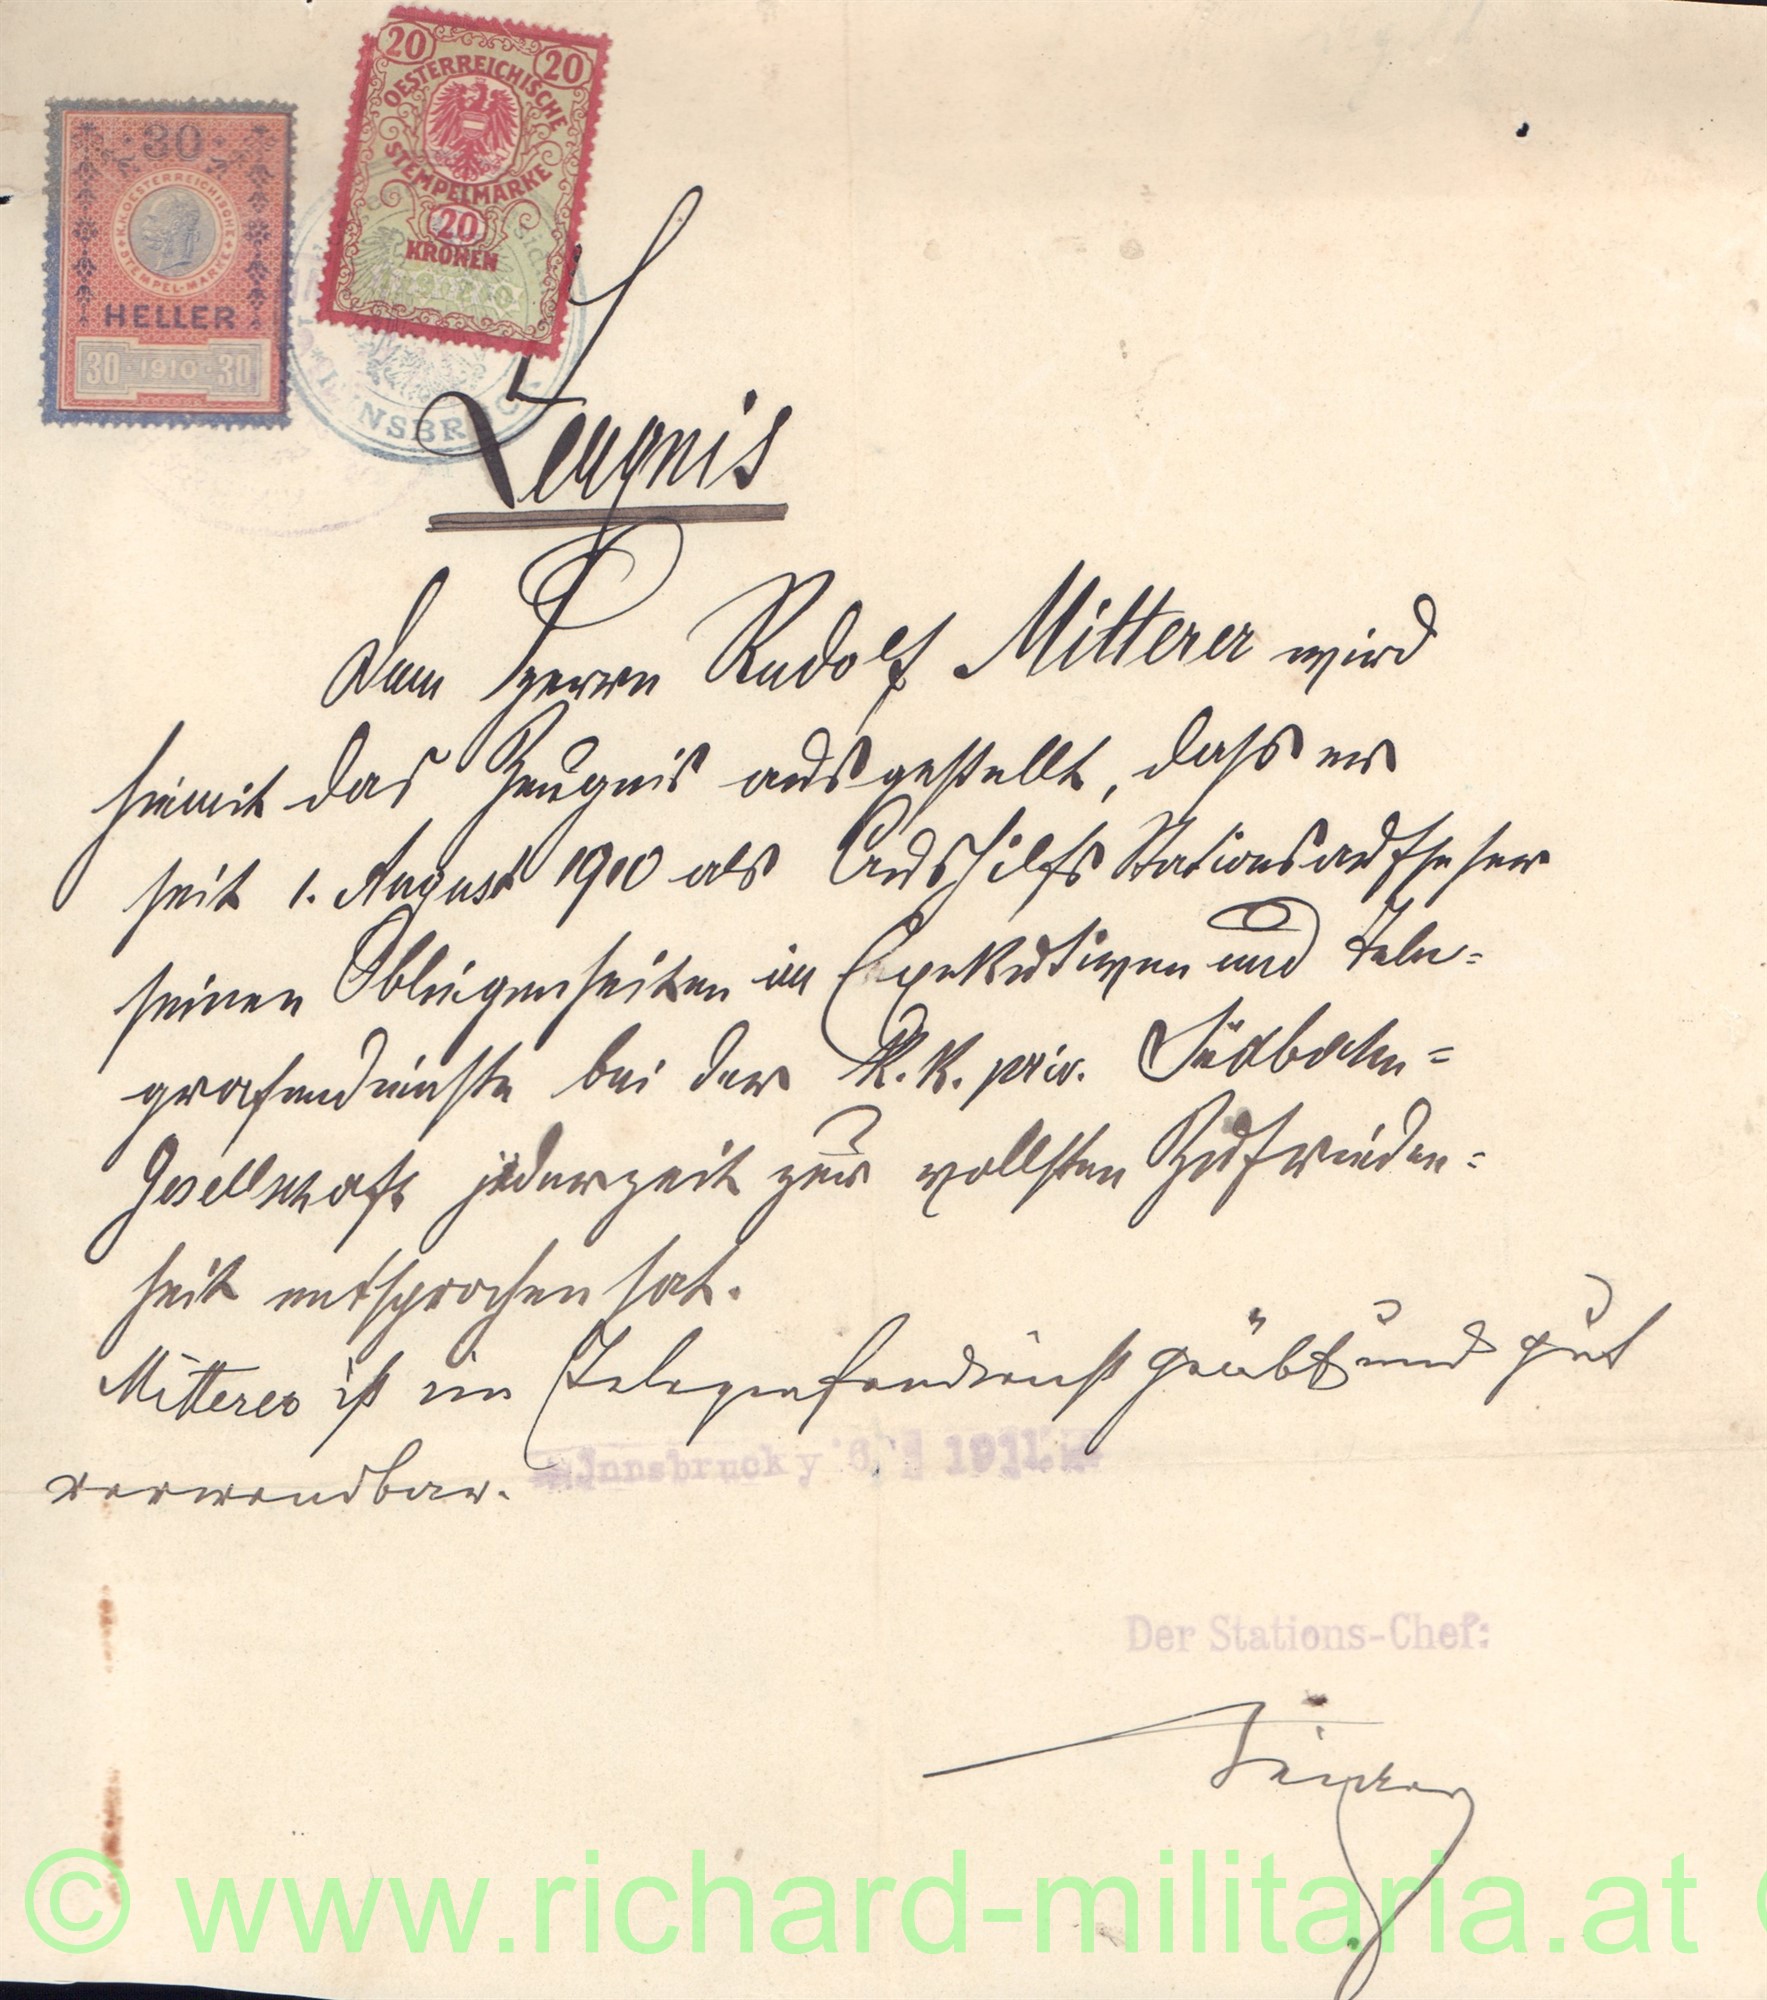 20 20
OESTERREICHISCHE
STEMPELMARKE
20
KRONEN
30
K.K. OESTERREICHISCHE
STEMPEL-MARKE
HELLER
30 1910 30
INNSBRUCK
Zeugnis
Dem Herrn Rudolf Mitterer wird
hiemit das Zeugnis ausgestellt, dass er
seit 1. August 1910 als Aushilfs Stationsaufseher
seinen Obliegenheiten im Exekutiven und Tele=
grafendienste bei der k. k. priv. Südbahn=
Gesellschaft jederzeit zur vollsten Zufrieden=
heit entsprochen hat.
Mitterer ist im Telegrafendienst geübt und gut
verwendbar.
Innsbruck 1911
Der Stations-Chef:
© www.richard-militaria.at ©